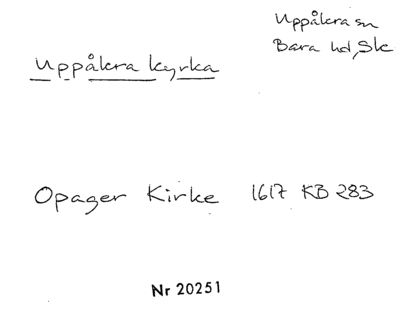 Uppåkra sn
Bara hd, Sk
Uppåkra kyrka
Opager Kirke 1617 KB 283
Nr 20251